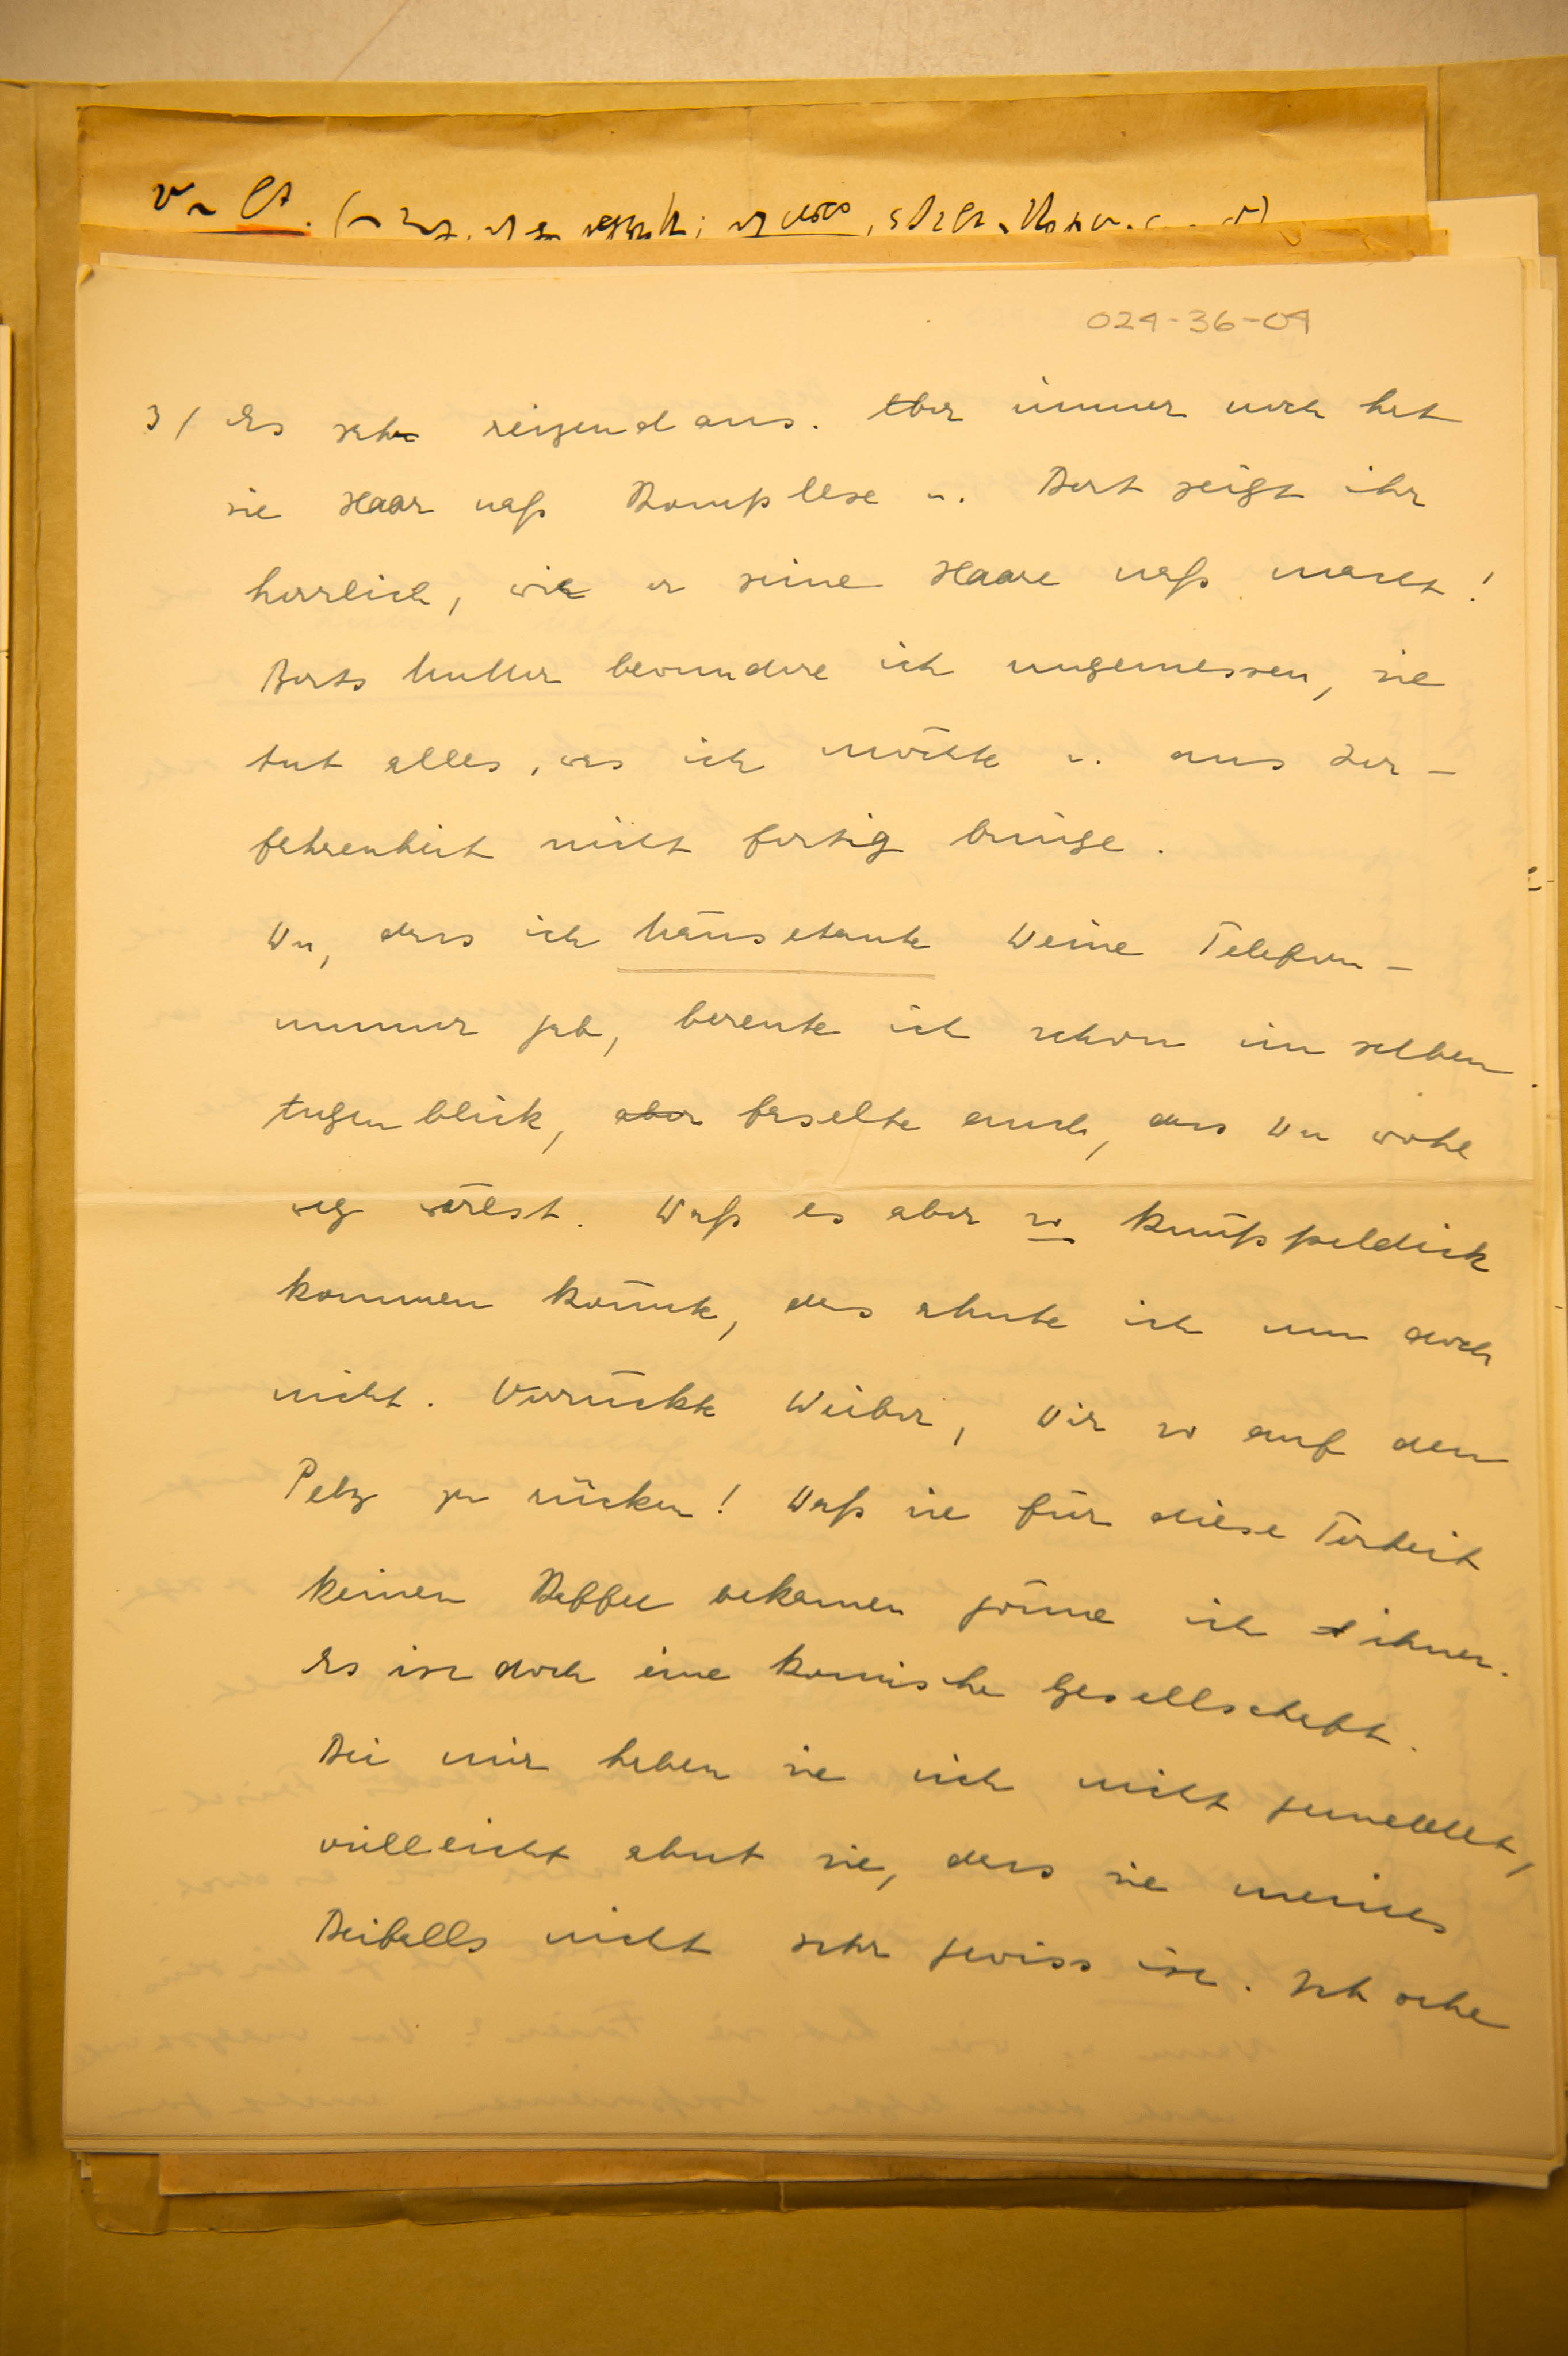 024-36-04
3/ Es sah reizend aus. Aber immer noch hat
sie Haar naß Komplexe u. Bert zeigt ihr
herrlich, wie er seine Haare naß macht!
Berts Mutter bewundere ich ungemessen, sie
tut alles, was ich möchte u. aus Zer-
fahrenheit nicht fertig bringe.
Du, dass ich Deine Telefon-
nummer gab, bereute ich schon im selben
Augenblick, aber faselte auch, dass Du wohl
weg wärest. Daß es aber so knüppeldick
kommen könnte, das ahnte ich nun doch
nicht. Verrückte Weiber, Dir so auf den
Pelz zu rücken! Daß sie für diese Torheit
keinen Kaffee bekamen gönne ich ihnen.
Es ist doch eine komische Gesellschaft.
Bei mir haben sie sich nicht gemeldet,
vielleicht ahnt sie, dass sie meines
Beifalls nicht sehr gewiss ist. Ich sehe